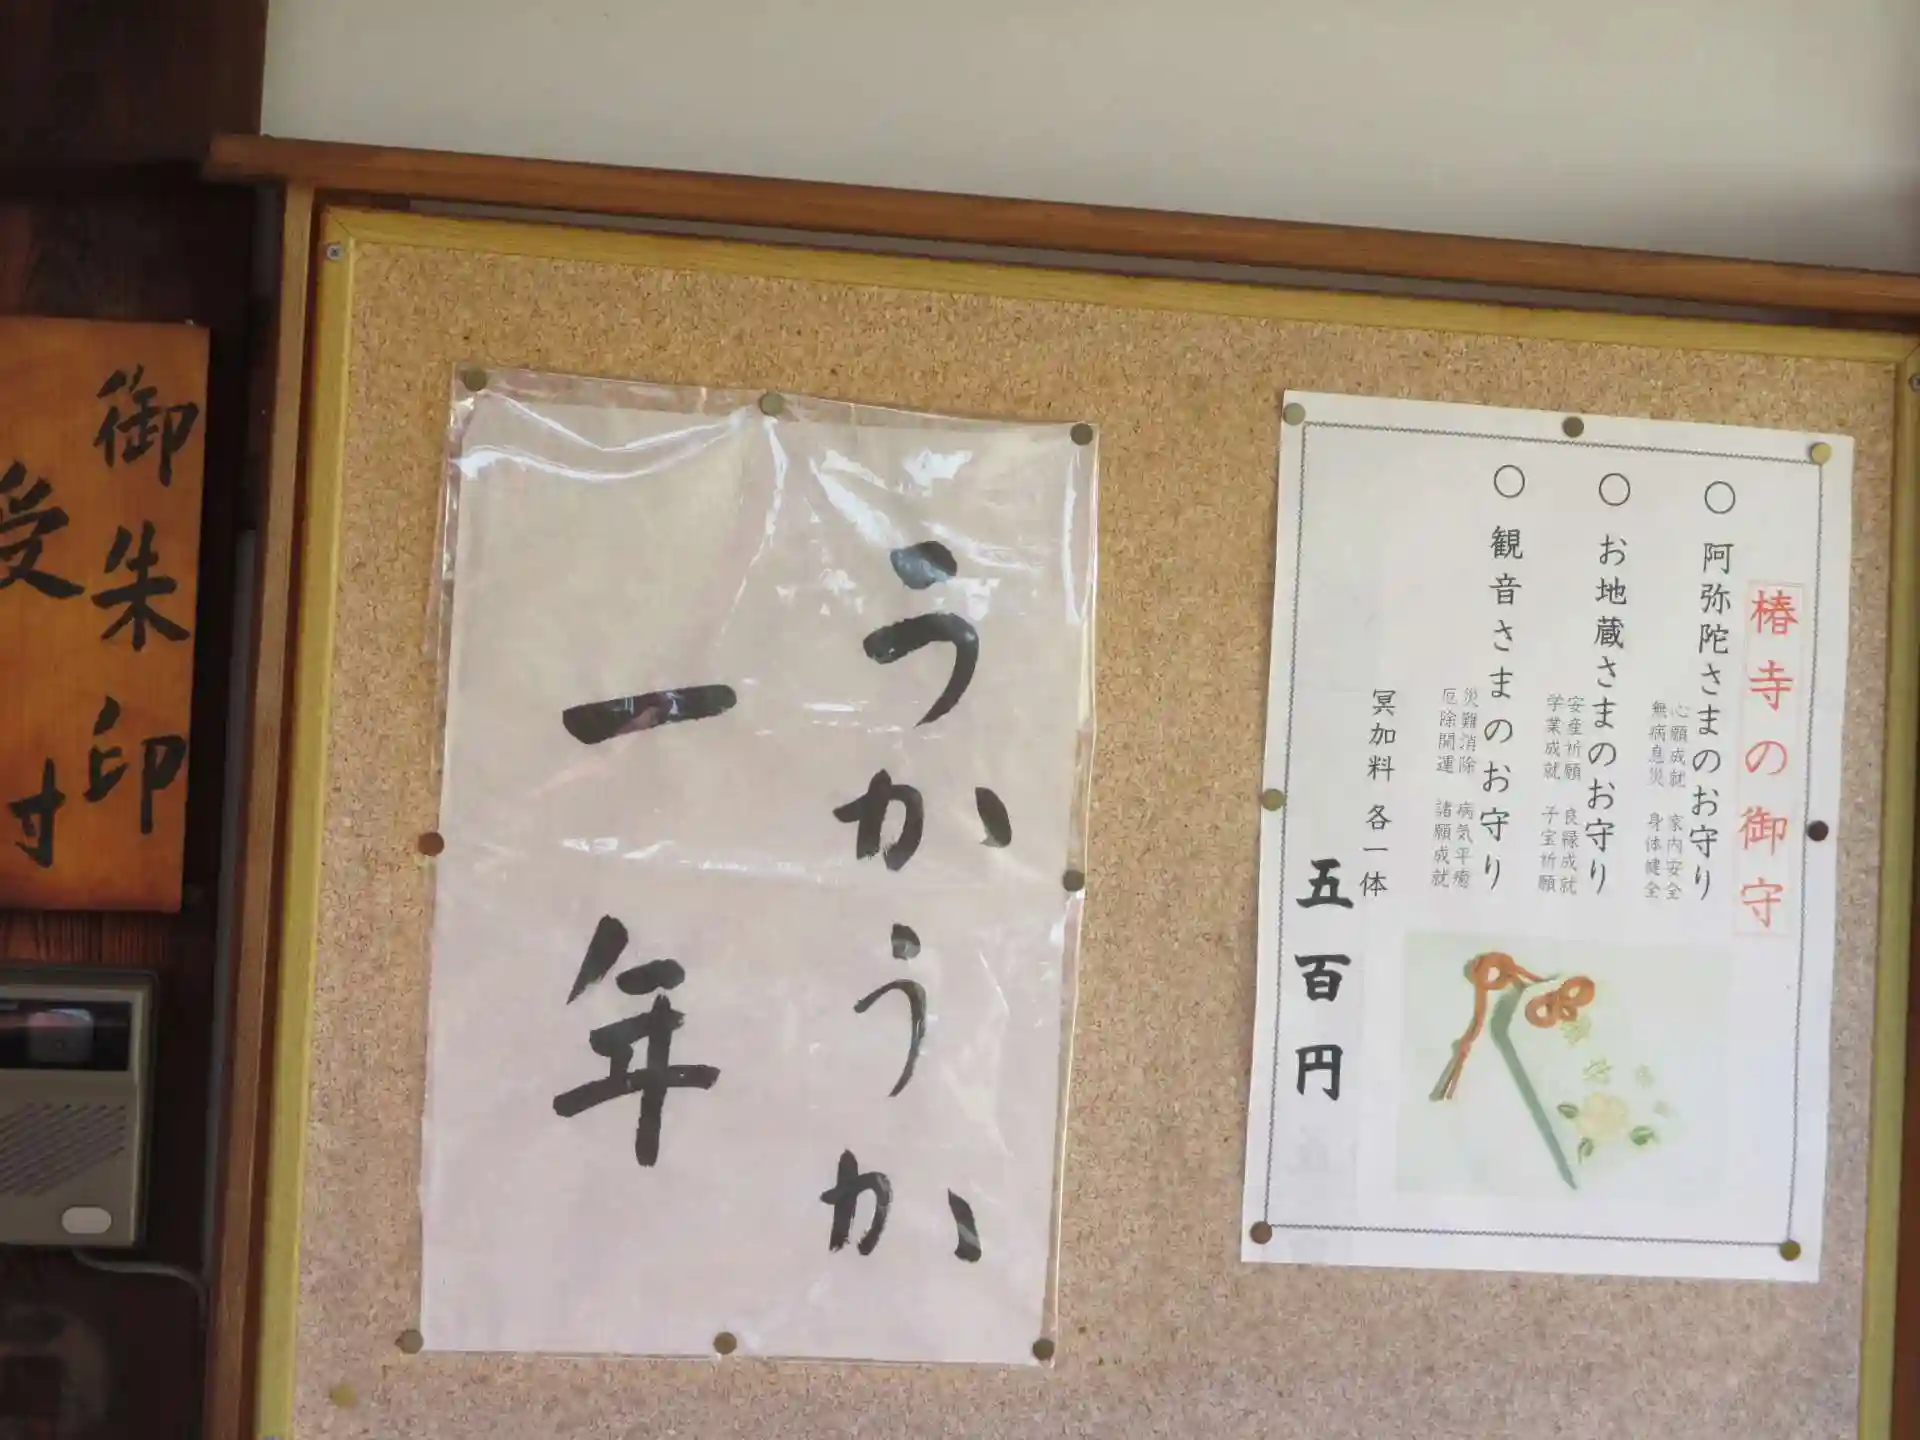 椿寺の御守
○ 阿弥陀さまのお守り
心願成就 家内安全
無病息災 身体健全
○ お地蔵さまのお守り
安産祈願 良縁成就
学業成就 子宝祈願
○ 観音さまのお守り
災難消除 病気平癒
厄除開運 諸願成就
冥加料 各一体
五百円
うかうか
一年
御朱印
受付